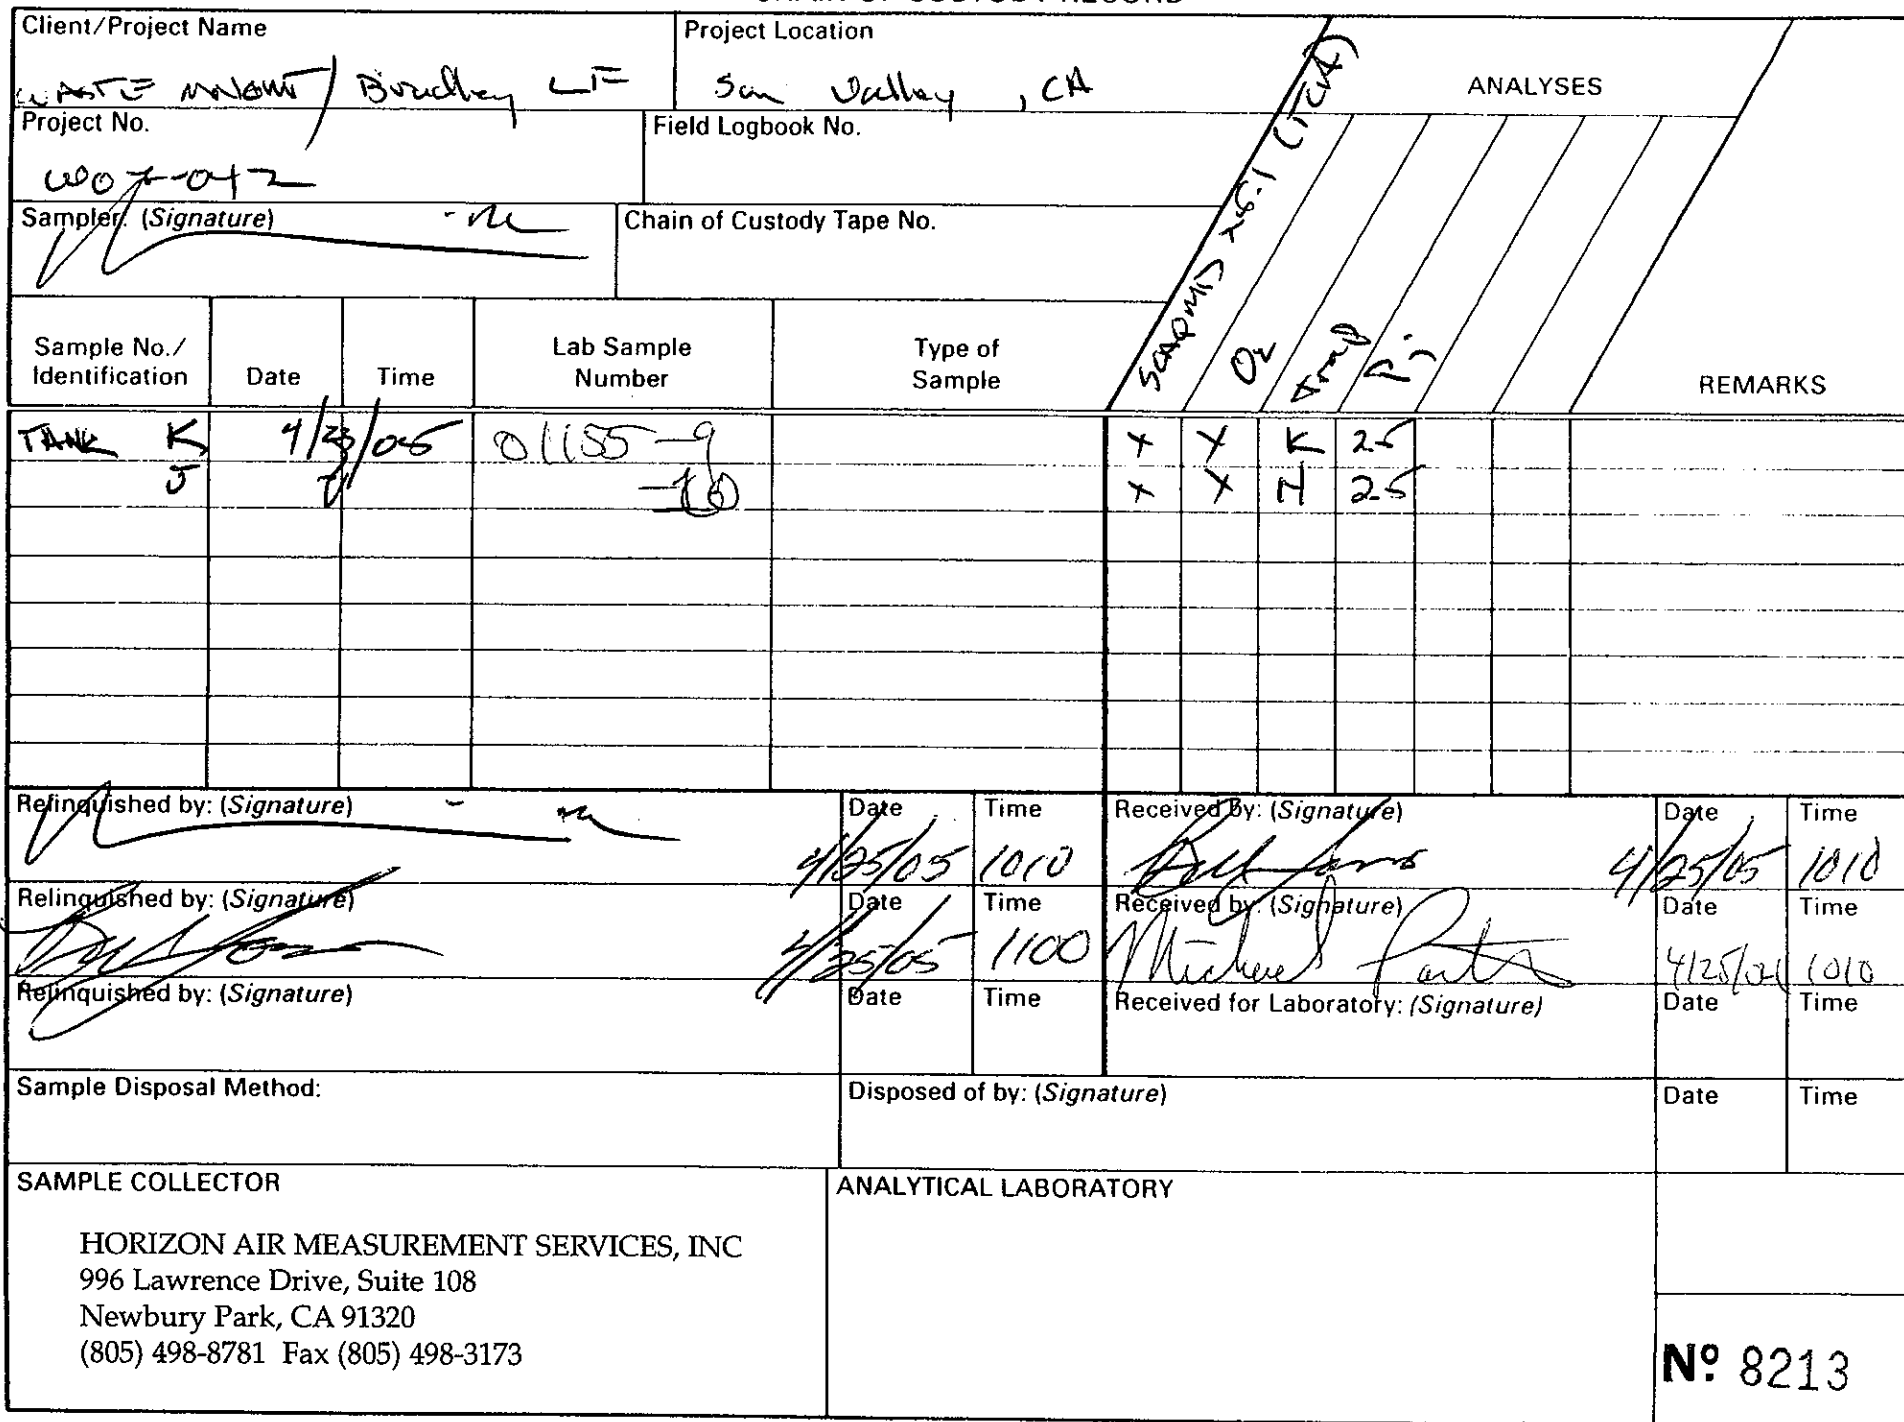 Client/Project Name
WASTE MNGMT / Bradley LF
Project Location
Sun Valley, CA
ANALYSES
Project No.
W07-042
Field Logbook No.
Sampler: (Signature)
Chain of Custody Tape No.
SCAQMD 25.1 (TCA)
O2
Trap
Pi
Sample No./
Identification
Date
Time
Lab Sample
Number
Type of
Sample
REMARKS
TANK K 4/23/05 01155-9 X X K 25
J -10 X X H 25
Relinquished by: (Signature)
Date
4/25/05
Time
1010
Received by: (Signature)
Date
4/25/05
Time
1010
Relinquished by: (Signature)
Date
4/25/05
Time
1100
Received by: (Signature)
Michael
Date
Time
1010
Relinquished by: (Signature)
Date
Time
Received for Laboratory: (Signature)
Date
Time
Sample Disposal Method:
Disposed of by: (Signature)
Date
Time
SAMPLE COLLECTOR
HORIZON AIR MEASUREMENT SERVICES, INC
996 Lawrence Drive, Suite 108
Newbury Park, CA 91320
(805) 498-8781 Fax (805) 498-3173
ANALYTICAL LABORATORY
Nº 8213